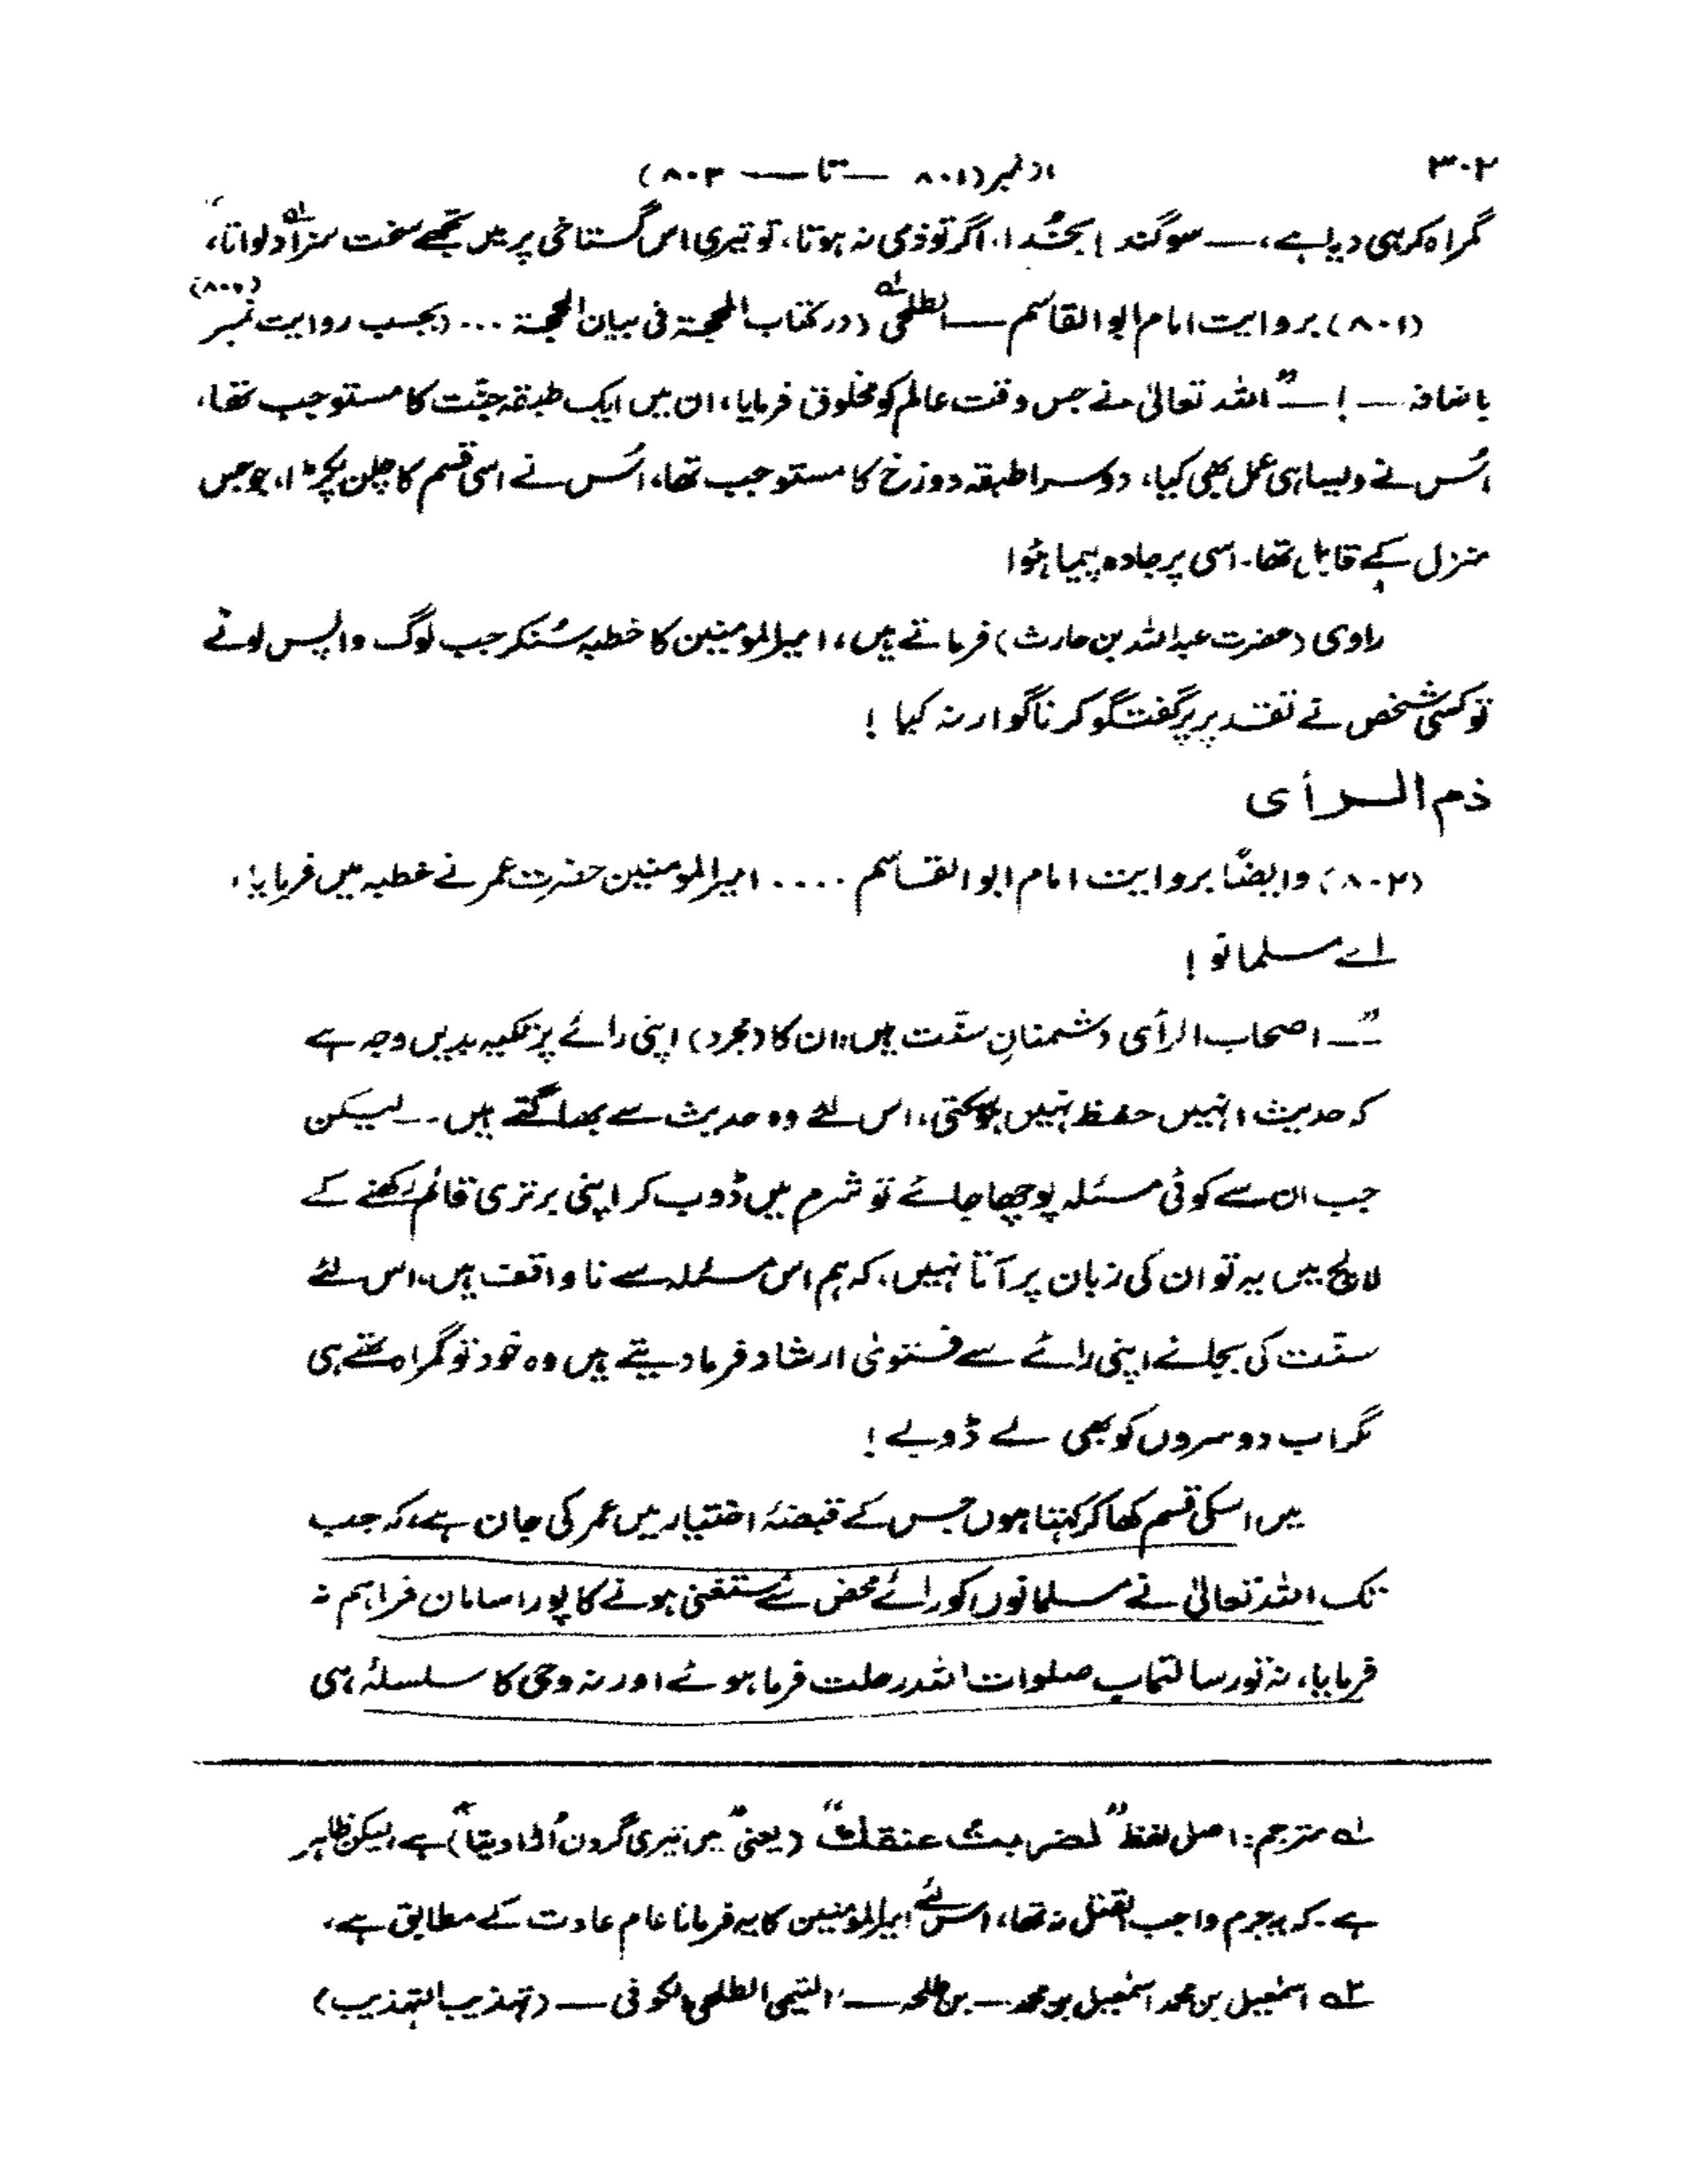 ۳۰۲ از نمبر (۸۰۱ — تا — ۸۰۳)
گمراہ کر ہی دیا ہے، — سوگند بخُدا، اگر تو ذمی نہ ہوتا، تو تیری اس گستاخی پر میں تجھے سخت سزا لہ دلواتا،“
(۸۰۱) بروایت امام ابوالقاسم — الطلحی ۲ہ (در کتاب الحجۃ فی بیان المحجۃ ... (بحسب روایت نمبر (۸۰۰)
باضافہ — ! — ”اللہ تعالیٰ نے جس وقت عالم کو مخلوق فرمایا، ان میں ایک طبقہ جنّت کا مستوجب تھا،
اُس نے ویسا ہی عمل بھی کیا، دوسرا طبقہ دوزخ کا مستوجب تھا، اُس نے اسی قسم کا چلن پکڑا، جو جس
منزل کے قابل تھا۔ اسی پر جادہ پیما ہُوا
راوی (حضرت عبداللہ بن حارث) فرماتے ہیں، امیرالمومنین کا خطبہ سُنکر جب لوگ واپس لوٹے
تو کسی شخص نے تقدیر پر گفتگو کرنا گوارہ نہ کیا !
ذم الرأی
(۸۰۲) وایضًا بروایت امام ابوالقاسم .... امیرالمومنین حضرت عمر نے خطبہ میں فرمایا،
اے مسلمانو !
”— اصحاب الرأی دشمنانِ سنّت ہیں، ان کا (مجرد) اپنی رائے پر تکیہ بدیں وجہ ہے
کہ حدیث انہیں حفظ نہیں ہو سکتی، اس لئے وہ حدیث سے بھاگتے ہیں۔ — لیکن
جب ان سے کوئی مسئلہ پوچھا جائے تو شرم میں ڈوب کر اپنی برتری قائم رکھنے کے
لالچ میں یہ تو ان کی زبان پر آتا نہیں، کہ ہم اس مسئلہ سے ناواقف ہیں، اس لئے
سنّت کی بجائے اپنی رائے سے فتویٰ ارشاد فرما دیتے ہیں وہ خود تو گمراہ تھے ہی
مگر اب دوسروں کو بھی لے ڈوبے !
میں اسکی قسم کھا کر کہتا ہوں جس کے قبضۂ اختیار میں عمر کی جان ہے، کہ جب
تک اللہ تعالیٰ نے مسلمانوں کو رائے محض سے مستغنی ہونے کا پورا سامان فراہم نہ
فرمایا، نہ تو رسالتمآب صلوات اللہ رحلت فرما ہوئے اور نہ وحی کا سلسلہ ہی
لہ مترجم: اصل لفظ ”لضربت عنقك“ (یعنی ”میں تیری گردن اُڑا دیتا“) ہے لیکن ظاہر
ہے۔ کہ یہ جرم واجب القتل نہ تھا، اس لئے امیرالمومنین کا یہ فرمانا عام عادت کے مطابق ہے،
۲ہ اسمٰعیل بن محمد اسمٰعیل بن محمد — بن طلحہ — التیمی الطلحی الکوفی — (تہذیب التہذیب)